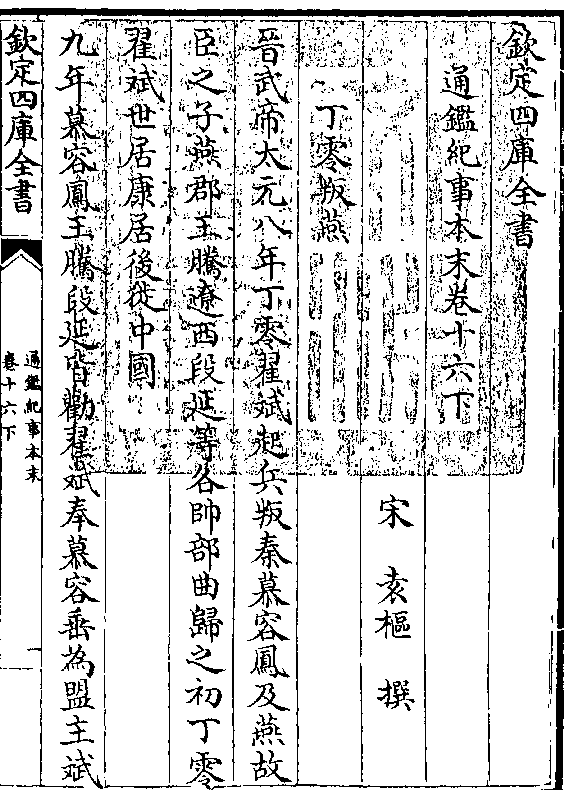 欽定四庫全書
通鑑紀事本末卷十六下
宋 袁樞 撰
丁零叛燕
晉武帝太元八年丁零翟斌起兵叛秦慕容鳳及燕故
臣之子燕郡王騰遼西段延等各帥部曲歸之初丁零
翟斌世居康居後徙中國
九年慕容鳳王騰段延皆勸翟斌奉慕容垂為盟主斌
欽定四庫全書
通鑑紀事本末
卷十六下
一